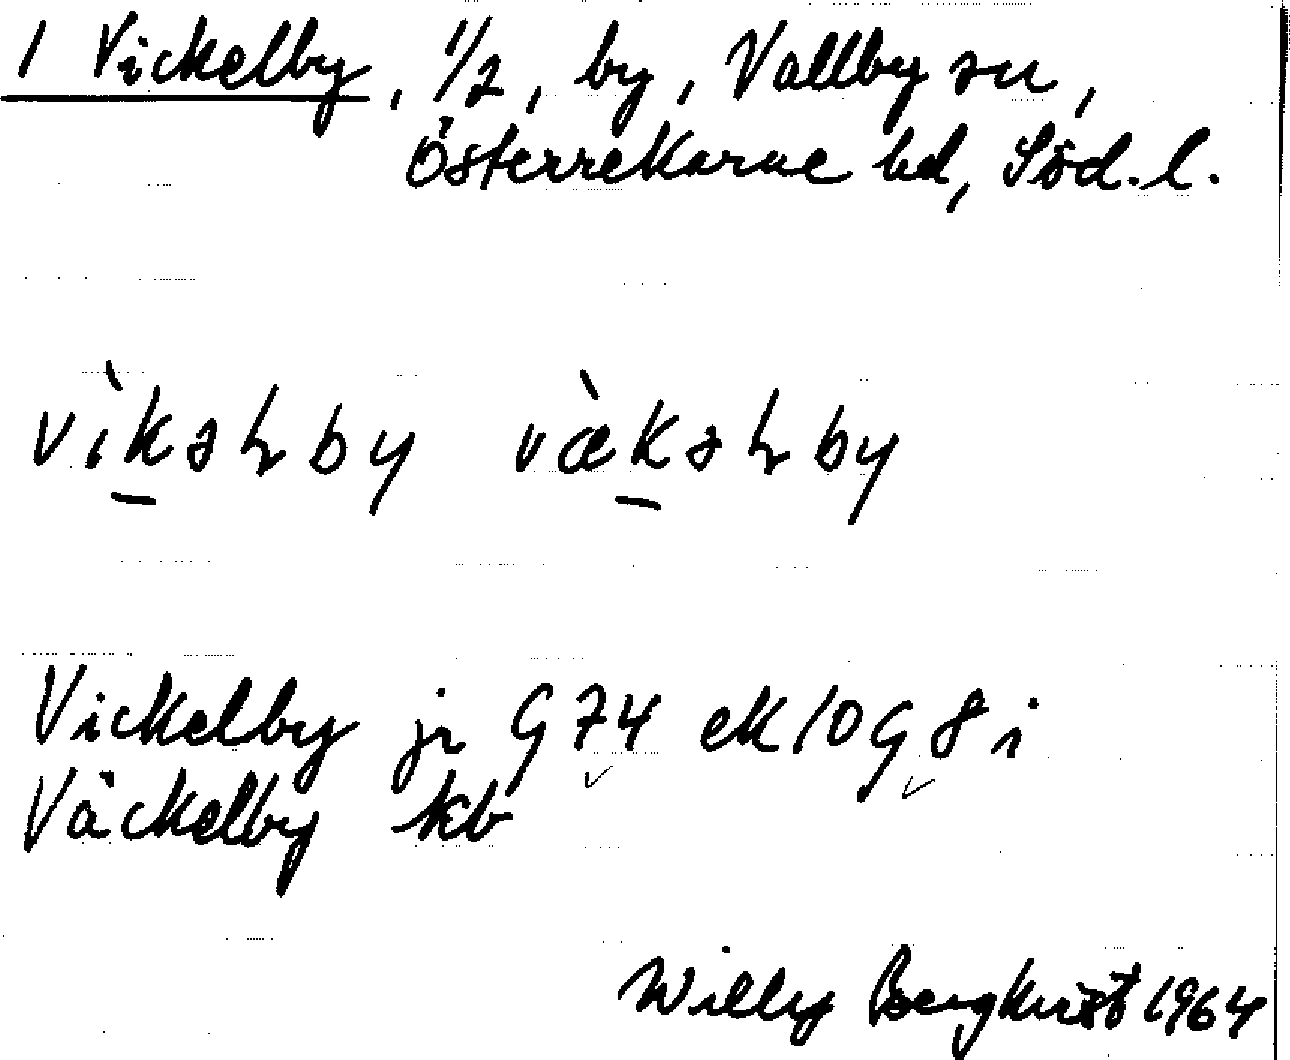 1 Vickelby, 1/2, by, Vallby sn,
Österrekarne hd, Söd. l.
vìkəɬby vækəɬby
Vickelby jr G74 ek 10G8i
Väckelby kb
Willy Bergkvist 1964